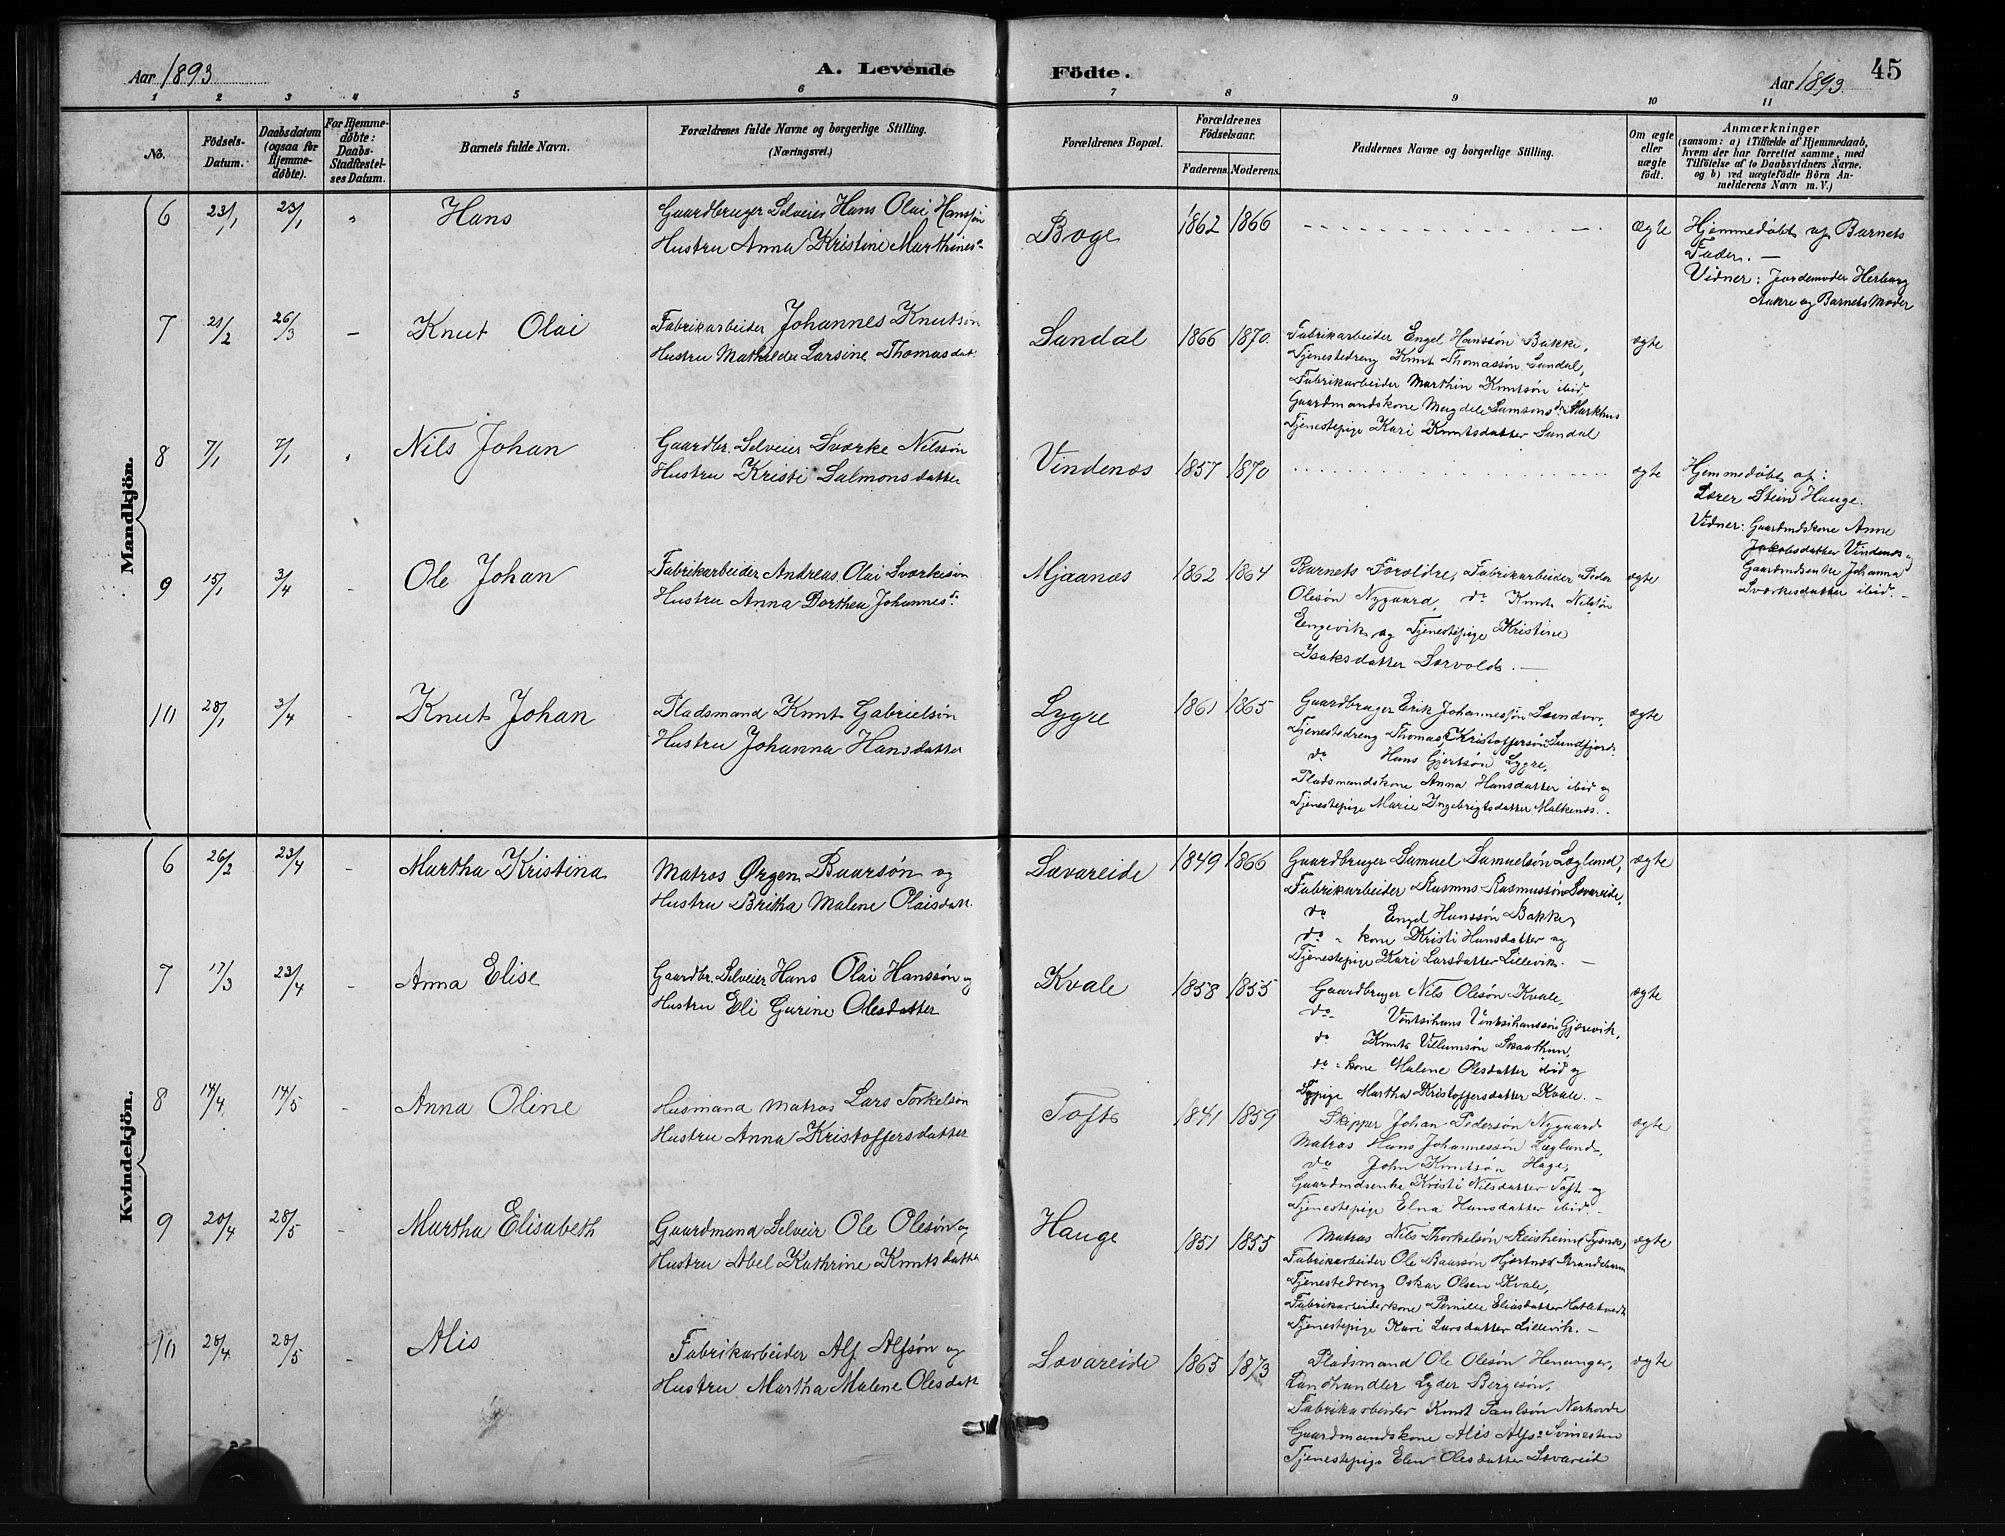 Aar 1893
A. Levende Födte.
Aar 1893.
45
1 2 3 4 5 6 7 8 9 10 11
No.
Födsels-Datum.
Daabsdatum (ogsaa for Hjemme-døbte).
For Hjemme-døbte: Daabs-Stadfæstel-ses Datum.
Barnets fulde Navn.
Forældrenes fulde Navne og borgerlige Stilling.
(Næringsvei.)
Forældrenes Bopæl.
Forældrenes Födselsaar.
Faderens. Moderens.
Faddernes Navne og borgerlige Stilling.
Om ægte eller uægte födt.
Anmærkninger
(sansom: a) i Tilfælde af Hjemmedaab,
hvem der har forrettet samme, med
Tilföielse af to Daabsvidners Navne.
og b) ved uægtefödte Börn An-
melderens Navn m. V.)
Mandkjön.
6 23/1 23/1 " Hans
Gaardbruger Selveier Hans Olai Hanssøn
Hustru Anna Kristine Marthines
Boge 1862 1866
Ægte
Hjemmedøbt af Barnets
Fader. —
Vidner: Jordemoder Herborg
Aakre og Barnets Moder
7 21/2 26/3 - Knut Olai
Fabrikarbeider Johannes Knutsøn
Hustru Mathilde Larsine Thomasdat
Sundal 1866 1870
Fabrikarbeider Engel Hanssøn Bakke,
Tjenestedreng Knut Thomassøn Sundal,
Fabrikarbeider Marthin Knutsøn ibid
Gaardmandskone Magdele Samsonsdr Markhus
Tjenestepige Kari Knutsdatter Sundal
ægte
8 7/1 7/1 " Nils Johan
Gaardbr. Selveier Sværke Nilssøn
Hustru Kristi Salmonsdatter
Vindenes 1857 1870
ægte
Hjemmedøbt af:
Lærer Stein Hauge.
Vidner: Gaardmdskone Anne
Jakobsdatter Vindenes og
Gaardmdsenke Johanna
Sværkesdatter ibid. —
9 15/1 3/4 - Ole Johan
Fabrikarbeider Andreas Olai Sværkesøn
Hustru Anna Dorthea Johannesd.
Mjaanes 1862 1864
Barnets Forældre, Fabrikarbeider Peder
Olesøn Nygaard, do Knut Nilssøn
Engevik og Tjenestepige Kristine
Isaksdatter Sørvold. —
ægte
10 28/1 3/4 - Knut Johan
Pladsmand Knut Gabrielsøn
Hustru Johanna Hansdatter
Lygre 1861 1865
Gaardbruger Erik Johannessøn Sandvor,
Tjenestedreng Thomas Kristoffersøn Sundfjord
do Hans Gjertsøn Lygre,
Pladsmandskone Anna Hansdatter ibid og
Tjenestepige Marie Ingebrigtsdatter Malkenes.
ægte
Kvindekjön.
6 26/2 23/4 - Martha Kristina
Matros Ørgen Baarsøn og
Hustru Britha Malene Olaisdatt.
Sævareide 1849 1866
Gaardbruger Samuel Samuelsøn Lægland,
Fabrikarbeider Rasmus Rasmussøn Sævareide,
do Engel Hanssøn Bakke,
do - kone Kristi Hansdatter og
Tjenestepige Kari Larsdatter Lillevik. —
ægte
7 17/3 23/4 - Anna Elise
Gaardbr. Selveier Hans Olai Hanssøn og
Hustru Eli Gurine Olesdatter
Kvale 1858 1855
Gaardbruger Nils Olesøn Kvale,
do Vintsihans Vintsihanssøn Gjerevik,
do Knut Villumsøn Skaathun,
do - kone Malene Olesdatter ibid og
Tjpige Martha Kristoffersdatter Kvale. —
ægte
8 14/4 14/5 - Anna Oline
Husmand Matros Lars Torkelsøn
Hustru Anna Kristoffersdatter
Toft 1841 1859
Skipper Johan Pedersøn Nygaard
Matros Hans Johannessøn Lægland,
do John Knutsøn Hage,
Gaardmdsenke Kristi Nilsdatter Toft og
Tjenestepige Elna Hansdatter ibid. —
ægte
9 20/4 28/5 - Martha Elisabeth
Gaardmand Selveier Ole Olesøn og
Hustru Abel Kathrine Knutsdatter
Hauge 1851 1855
Matros Nils Thorkelsøn Reisheim (Tysnes),
Fabrikarbeider Ole Baarsøn Hjertnes Strandebarm
Tjenestedreng Oskar Olsen Kvale,
Fabrikarbeiderkone Pernille Eliasdatter Hatletvedt
Tjenestepige Kari Larsdatter Lillevik. —
ægte
10 20/4 28/5 - Alis
Fabrikarbeider Alf Alfsøn og
Hustru Martha Malene Olesdatt
Sævareide 1865 1873
Pladsmand Ole Olesøn Henanger,
Landhandler Lyder Bergesøn,
Fabrikarbeider Knut Paulsøn Nerhovde
Gaardmandskone Alis Alfsd Svinesten
Tjenestepige Elen Olesdatter Sævareid
ægte